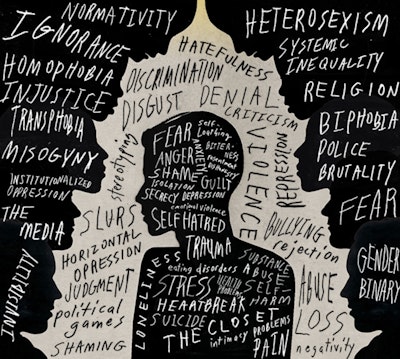 NORMATIVITY
IGNORANCE
HOMOPHOBIA
INJUSTICE
TRANSPHOBIA
MISOGYNY
INSTITUTIONALIZED
OPPRESSION
THE
MEDIA
INVISIBILITY
HETEROSEXISM
SYSTEMIC
INEQUALITY
RELIGION
BIPHOBIA
POLICE
BRUTALITY
FEAR
GENDER
BINARY
HATEFULNESS
DISCRIMINATION
DISGUST
DENIAL
CRITICISM
VIOLENCE
DEPRESSION
stereotyping
SLURS
HORIZONTAL
OPRESSION
JUDGMENT
political
games
SHAMING
BULLYING
rejection
ABUSE
LOSS
negativity
FEAR
self-
Loathing
ANGER
ANXIETY
BITTER-
NESS
resentment
SHAME
ISOLATION
GUILT
SECRECY DEPRESSION
emotional violence
SELF HATRED
TRAUMA
LONELINESS
eating disorders
SUBSTANCE
ABUSE
STRESS
SELF
HARM
HEARTBREAK
SUICIDE
THE CLOSET
intimacy PROBLEMS
PAIN